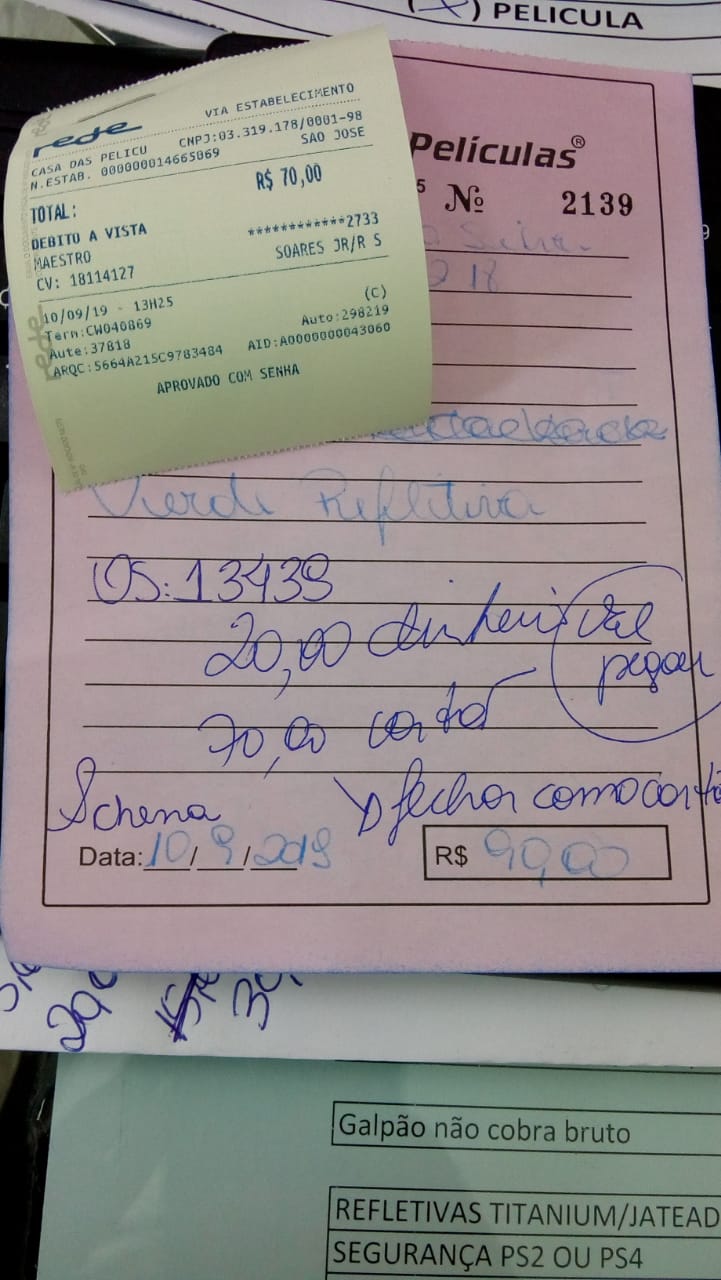 ) PELICULA
rede
VIA ESTABELECIMENTO
CASA DAS PELICU CNPJ:03.319.178/0001-98
N.ESTAB. 000000014665069 SAO JOSE
TOTAL: R$ 70,00
DEBITO A VISTA ************2733
MAESTRO SOARES JR/R S
CV: 18114127
10/09/19 - 13H25 (C)
Term:CW040869 Auto:298219
Aute:37818
ARQC:5664A215C9783484 AID:A0000000043060
APROVADO COM SENHA
rede
Películas®
5 Nº 2139
218
Verde Refletiva
OS: 13439
20,00 dinheiro Vai
pegar
70,00 cartão
Schena fechar como cartã
Data: 10/9/2019 R$ 90,00
Galpão não cobra bruto
REFLETIVAS TITANIUM/JATEAD
SEGURANÇA PS2 OU PS4